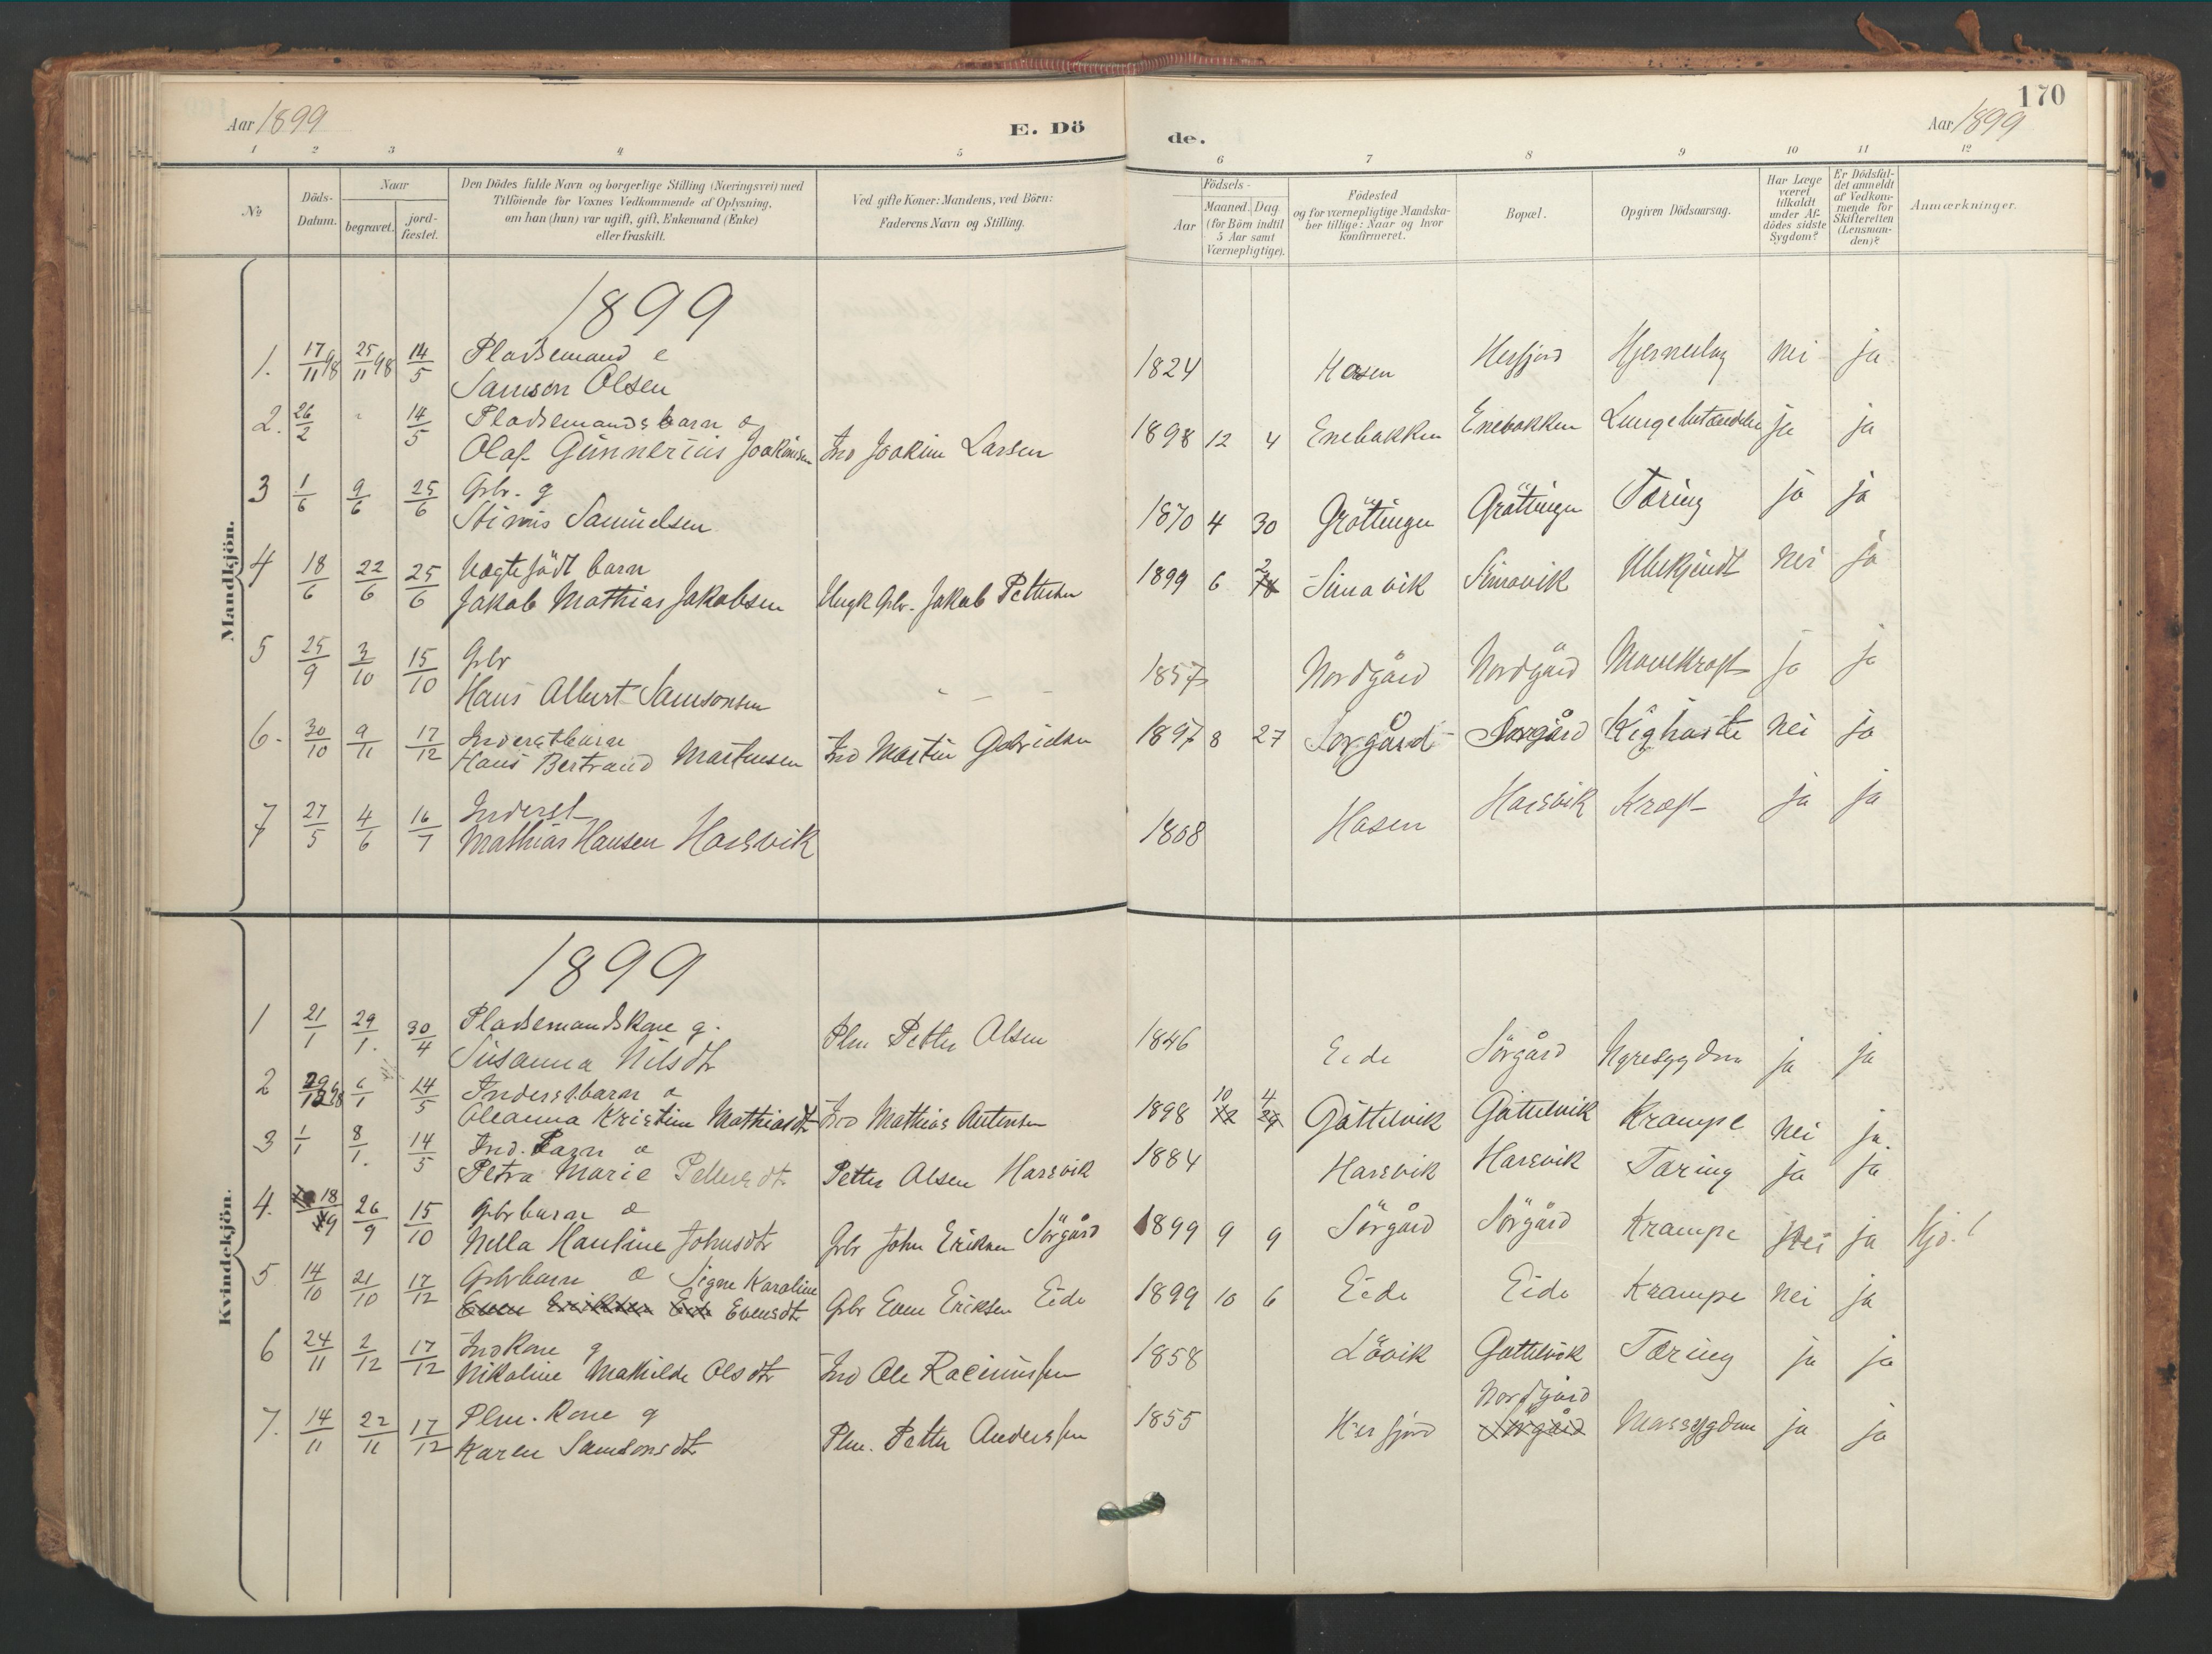 170
Aar 1899
E. Dö
de.
Aar 1899
1 2 3 4 5 6 7 8 9 10 11 12
No
Döds-
Datum.
Naar
begravet.
jord-
fæstet.
Den Dödes fulde Navn og borgerlige Stilling (Næringsvei) med
Tilföiende for Voxnes Vedkommende af Oplysning,
om han (hun) var ugift, gift, Enkemand (Enke)
eller fraskilt.
Ved gifte Koner: Mandens, ved Börn:
Faderens Navn og Stilling.
Födsels-
Aar
Maaned. Dag
(for Börn indtil
5 Aar samt
Værnepligtige).
Födested
og for værnepligtige Mandska-
ber tillige: Naar og hvor
Konfirmeret.
Bopæl.
Opgiven Dödsaarsag.
Har Læge
været
tilkaldt
under Af-
dödes sidste
Sygdom?
Er Dödsfal-
det anmeldt
af Vedkom-
mende for
Skifteretten
(Lensman-
den)?
Anmærkninger.
Mandkjön.
1899
1. 17/11 98 25/11 98 14/5 Pladsemand e
Samson Olsen 1824 Hosen Hersfjord nei ja
2. 26/2 " 14/5 Pladsemandsbarn
Olaf Günnerius Joakimsen Ind Joakim Larsen 1898 12 4 Enebakken Enebakken Lungebetændelse ja ja
3 1/6 9/6 25/6 Gbr. g
Samuelsen 1870 4 30 Gröttingen Gröttingen Tæring ja ja
4 18/6 22/6 25/6 barn
Jakob Mathias Jakobsen Ungk Gbr. Jakob Pettersen 1899 6 2 Simavik Simavik Ubekjendt nei ja
5 25/9 3/10 15/10 Gbr
Hans Albert Samsonsen - - - 1857 Nordgård Nordgård Mavekræft ja ja
6. 30/10 9/11 17/12 Inderstbarn
Hans Bertrand Martinsen Ind Martin Gabrielsen 1897 8 27 Sörgård Sörgård Kighoste nei ja
7 27/5 4/6 16/7 Inderst
Mathias Hansen Harsvik 1808 Hosen Harsvik Kræft ja ja
Kvindekjön.
1899
1 21/1 29/1. 30/4 Pladsemandskone g.
Susanna Nilsdtr Plm Petter Olsen 1846 Eide Sörgård Nyresygdom ja ja
2 29/12 98 6/1 14/5 Inderstbarn
Oleanna Kristine Mathiasdtr Ind Mathias Antonsen 1898 10 4 Gåttelvik Gåttelvik Krampe nei ja.
3 1/1 8/1. 14/5 Ind. Barn
Petra Marie Pettersdtr Petter Olsen Harsvik 1884 Harsvik Harsvik Tæring ja ja
4. 18/9 26/9 15/10 Gbrbarn
Nella Hanline Johnsdtr Gbr John Eriksen Sörgård 1899 9 9 Sörgård Sörgård Krampe nei ja
5 14/10 21/10 17/12 Gbrbarn Signe Karoline
Even Eriksen Eide Evensdtr Gbr Even Eriksen Eide 1899 10 6 Eide Eide Krampe nei ja
6 24/11 2/12 17/12 Indkone g
Nikoline Mathilde Olsdtr Ind Ole Rasmussen 1858 Låvik Gåttelvik Tæring ja ja
Nordgård
7. 14/11 22/11 17/12 Plm. Kone g
Karen Samsonsdtr Plm. Petter Anderssen 1855 Hersfjord Sörgård ja ja